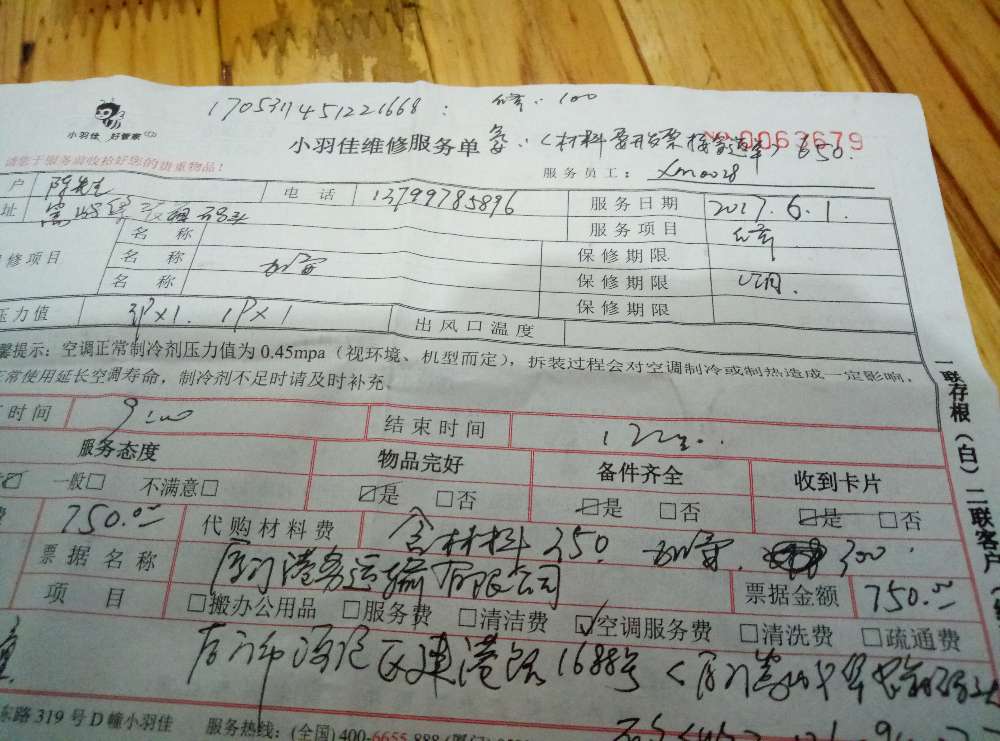 1705311451221668: 维修: 100
小羽佳 好管家
小羽佳维修服务单 No 0063679
(材料要开发票 650.
请您于服务前收拾好您的贵重物品!
服务员工: xm0028
户 陈先生 电话 13799785896 服务日期 2017.6.1.
址 服务项目 维修
名称
修项目 名称 加雪 保修期限
名称 保修期限
保修期限
压力值 3P×1. 1P×1 出风口温度
馨提示: 空调正常制冷剂压力值为 0.45mpa (视环境、机型而定), 拆装过程会对空调制冷或制热造成一定影响,
正常使用延长空调寿命, 制冷剂不足时请及时补充。
时间 9:00 结束时间
服务态度 物品完好 备件齐全 收到卡片
☑ 一般□ 不满意□ ☑是 □否 ☑是 □否 ☑是 □否
费 750.00 代购材料费 含材料350. 加雪. 300.
票据名称 厦门港务运输有限公司 票据金额 750.00
项目 □搬办公用品 □服务费 □清洁费 ☑空调服务费 □清洗费 □疏通费
厦门市海沧区建港路1688号
东路 319 号 D 幢小羽佳 服务热线: (全国) 400-6655-888
一联存根(白) 二联客户